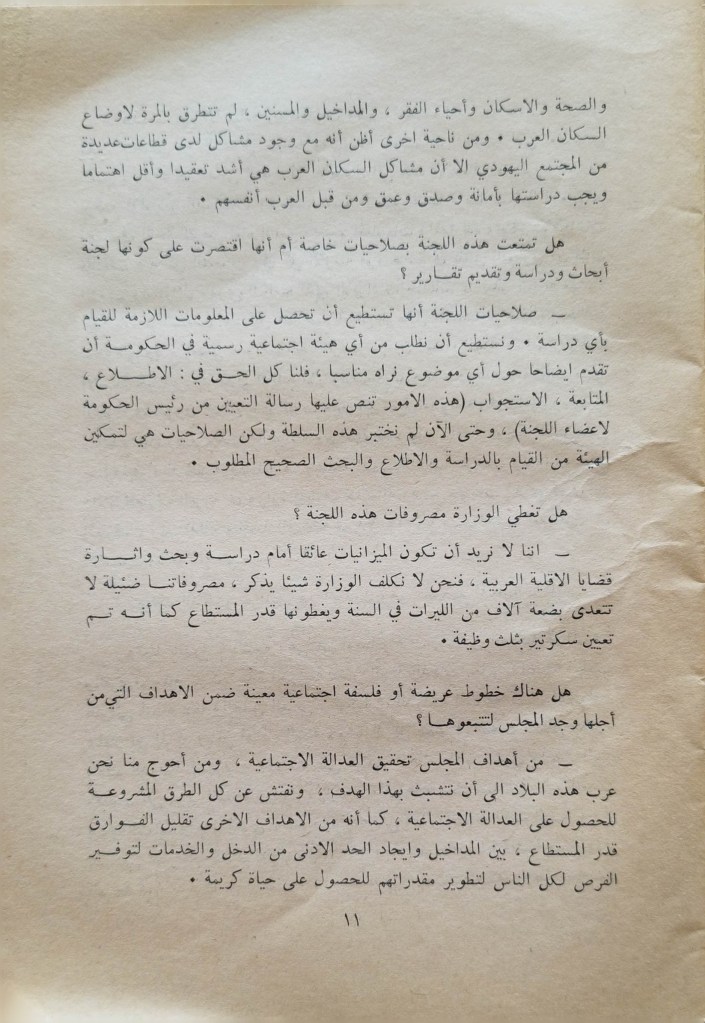 والصحة والاسكان وأحياء الفقر ، والمداخيل والمسنين ، لم تتطرق بالمرة لاوضاع
السكان العرب • ومن ناحية اخرى أظن أنه مع وجود مشاكل لدى قطاعات عديدة
من المجتمع اليهودي الا أن مشاكل السكان العرب هي أشد تعقيدا وأقل اهتماما
ويجب دراستها بأمانة وصدق وعمق ومن قبل العرب أنفسهم •
هل تمتعت هذه اللجنة بصلاحيات خاصة أم أنها اقتصرت على كونها لجنة
أبحاث ودراسة وتقديم تقـــارير ؟
ـ صلاحيات اللجنة أنها تستطيع أن تحصل على المعلومات اللازمة للقيام
بأي دراسة • ونستطيع أن نطاب من أي هيئة اجتماعية رسمية في الحكومـة أن
تقدم ايضاحا حول أي موضوع نراه مناسبا ، فلنا كل الحـق في : الاطـــلاع ،
المتابعة ، الاستجواب (هذه الامور تنص عليها رسالة التعيين من رئيس الحكومة
لاعضاء اللجنة) ، وحتى الآن لم نختبر هذه السلطة ولكن الصلاحيات هي لتمكين
الهيئة من القيام بالدراسة والاطلاع والبحث الصحيح المطلوب •
هل تغطي الوزارة مصروفات هذه اللجنة ؟
ـ اننا لا نريد أن تكون الميزانيات عائقا أمام دراســة وبحث واثــارة
قضايا الاقلية العربية ، فنحن لا نكلف الوزارة شيئا يذكر ، مصروفاتنـا ضئيلة لا
تتعدى بضعة آلاف من الليرات في السنة ويغطونها قدر المستطاع كما أنـه تـم
تعيين سكرتير بثلث وظيفة •
هل هناك خطوط عريضة أو فلسفة اجتماعية معينة ضمن الاهداف التي من
أجلها وجد المجلس لتتبعوهــا ؟
ـ من أهداف المجلس تحقيق العدالة الاجتماعية ، ومن أحوج منا نحن
عرب هذه البلاد الى أن نتشبث بهذا الهدف ، ونفتش عن كل الطرق المشروعــة
للحصول على العدالة الاجتماعية ، كما أنه من الاهداف الاخرى تقليل الفــوارق
قدر المستطاع ، بين المداخيل وايجاد الحد الادنى من الدخل والخدمات لتوفــير
الفرص لكل الناس لتطوير مقدراتهم للحصول على حياة كريمة •
١١